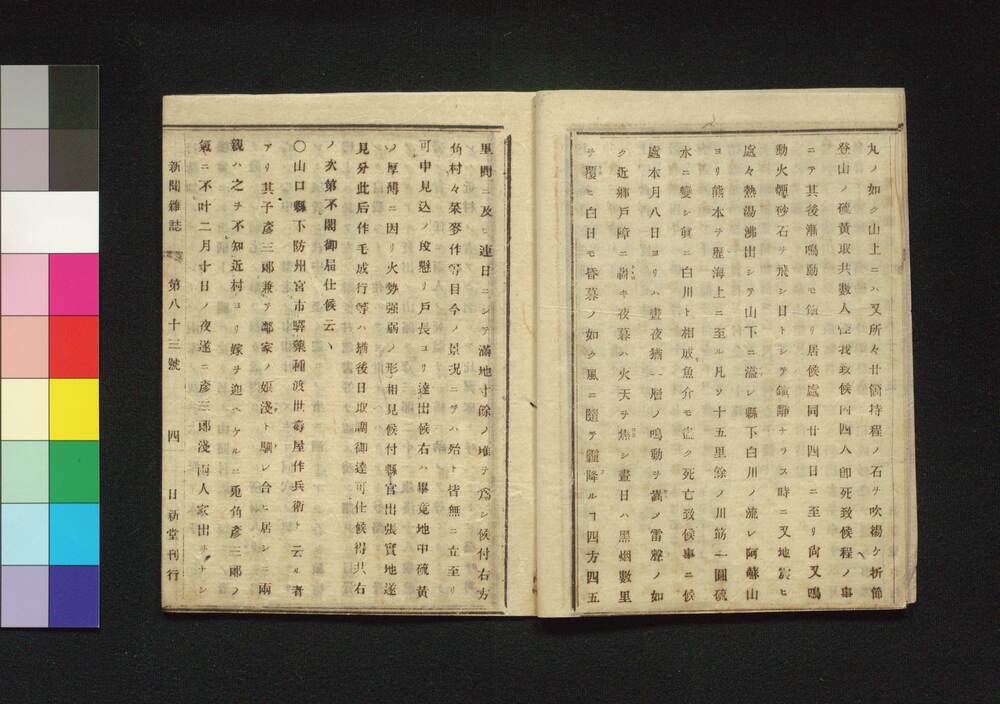 丸ノ如ク山上ニハ又所々廿個持程ノ石ヲ吹揚ケ折節
登山ノ硫黄取共數人怪我致候內四人卽死致候程ノ事
ニテ其後漸鳴動モ鎮リ居候處同廿四日ニ至リ尙又鳴
動火煙砂石ヲ飛シ日トシテ鎮靜ナラス時ニ又地震ヒ
處々熱湯沸出シテ山下ニ溢レ縣下白川ノ流レ阿蘇山
ヨリ熊本ヲ歷海上ニ至ル凡ソ十五里餘ノ川筋一圓硫
水ニ變シ眞ニ白川ト相成魚介モ盡ク死亡致候事ニ候
處本月八日ヨリハ晝夜猶一層ノ鳴動ヲ嵩ノ雷聲ノ如
ク近鄕戶障ニ轟キ夜暮ハ火天ヲ焦シ晝日ハ黑烟數里
ヲ覆ヒ白日モ昏暮ノ如ク風ニ隨テ霾降ルヿ四方四五
里間ニ及ヒ連日ニシテ滿地寸餘ノ堆ヲ爲シ候付右方
角村々菜麥作等目今ノ景況ニテハ殆ト皆無ニ立至リ
可申見込ノ段懸リ戶長ヨリ達出候右ハ畢竟地中硫黃
ノ厚薄ニ因リ火勢強弱ノ形相見候付縣官出張實地遂
見分此后作毛成行等ハ猶後日取調御達可仕候得共右
ノ次第不閣御屆仕候云々
〇山口縣下防州宮市驛藥種渡世壽屋作兵衛ト云ル者
アリ其子彥三郞兼テ鄰家ノ娘淺ト馴レ合ヒ居シニ兩
親ハ之ヲ不知近村ヨリ嫁ヲ迎ヘケルニ兎角彥三郞ノ
氣ニ不叶二月十日ノ夜遂ニ彥三郞淺兩人家出ヲナシ
新聞雜誌 第八十三號 四 日新堂刊行